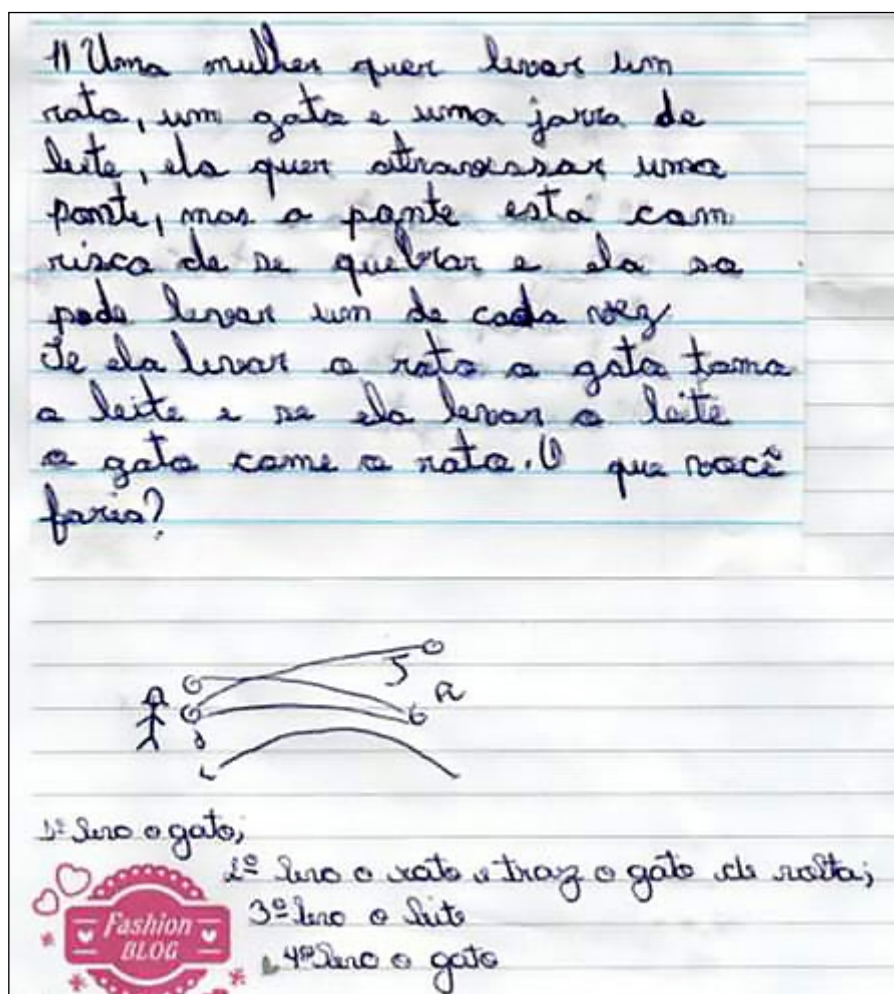 1) Uma mulher quer levar um
rato, um gato e uma jarra de
leite, ela quer atravessar uma
ponte, mas a ponte está com
risco de se quebrar e ela so
pode levar um de cada vez
Se ela levar o rato o gato toma
o leite e se ela levar o leite
o gato come o rato. O que você
faria?
J
R
1º levo o gato;
2º levo o rato e traz o gato de volta;
3º levo o leite
4º levo o gato
Fashion
BLOG